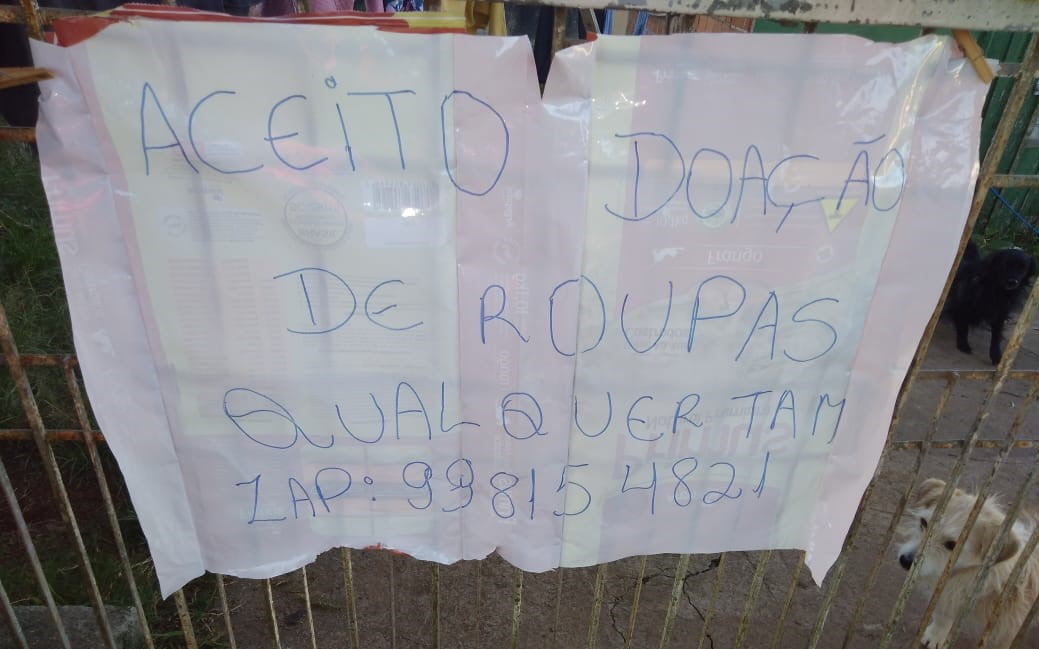 ACEiTO DOAÇÃO
DE ROUPAS
QUALQUER TAM
ZAP: 99815 4821
Frango